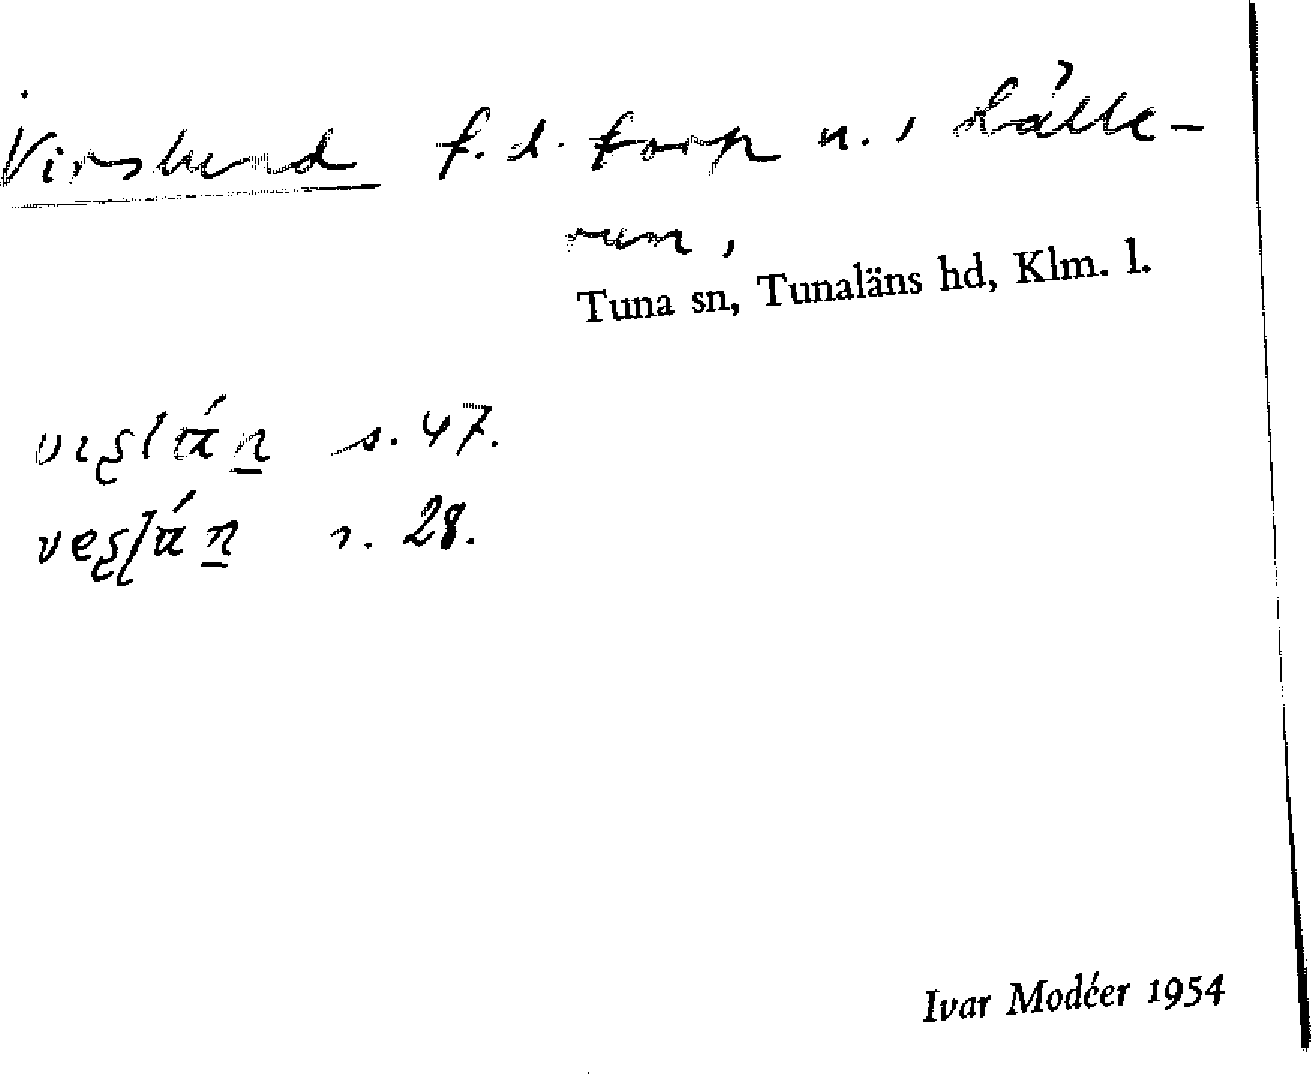 Virslund f.d. torp u., Hälle-
run,
Tuna sn, Tunaläns hd, Klm. l.
s. 47.
s. 28.
Ivar Modéer 1954